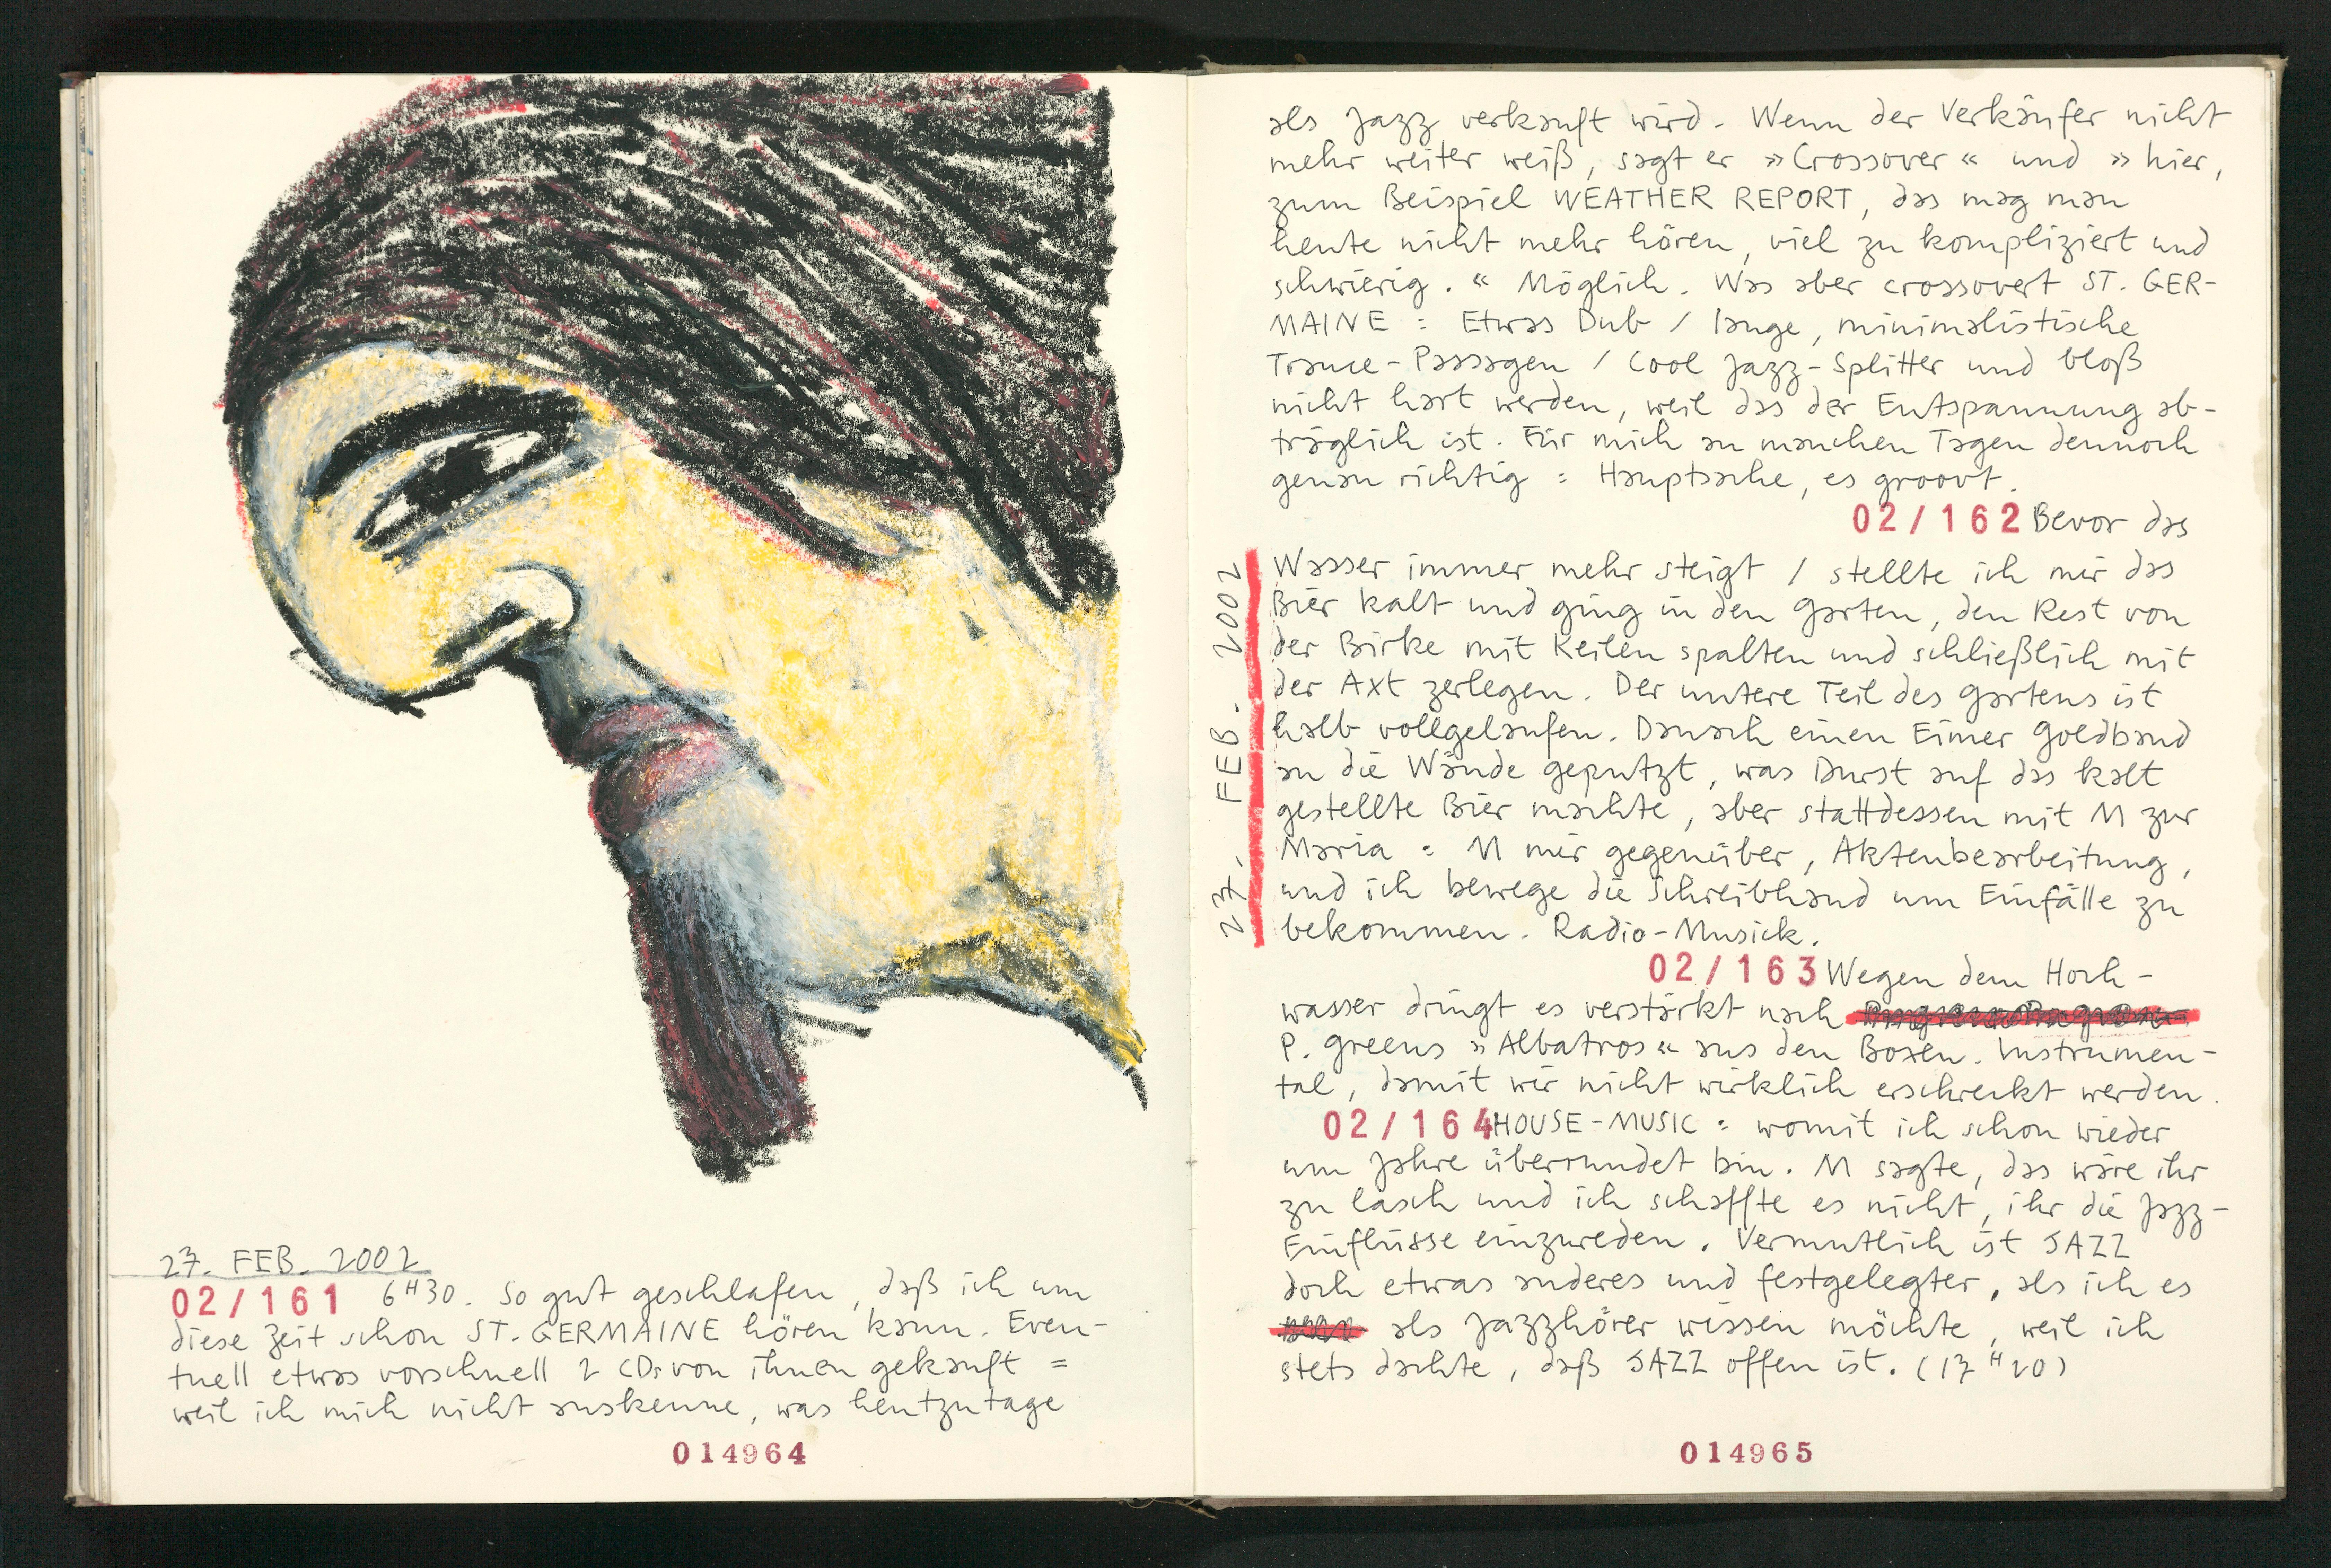 27. FEB. 2002
02/161 6H30. So gut geschlafen, daß ich um
diese Zeit schon ST. GERMAINE hören kann. Even-
tuell etwas vorschnell 2 CDs von ihnen gekauft =
weil ich mich nicht auskenne, was heutzutage
014964
als Jazz verkauft wird. Wenn der Verkäufer nicht
mehr weiter weiß, sagt er »Crossover« und »hier,
zum Beispiel WEATHER REPORT, das mag man
heute nicht mehr hören, viel zu kompliziert und
schwierig.« Möglich. Was aber crossovert ST. GER-
MAINE = Etwas Dub / lange, minimalistische
Trance-Passagen / Cool Jazz-Splitter und bloß
nicht hart werden, weil das der Entspannung ab-
träglich ist. Für mich an manchen Tagen dennoch
genau richtig = Hauptsache, es groovt.
02/162 Bevor das
27. FEB. 2002
Wasser immer mehr steigt / stellte ich mir das
Bier kalt und ging in den Garten, den Rest von
der Birke mit Keilen spalten und schließlich mit
der Axt zerlegen. Der untere Teil des Gartens ist
halb vollgelaufen. Danach einen Eimer Goldband
an die Wände geputzt, was Durst auf das kalt
gestellte Bier machte, aber stattdessen mit M zur
Maria = M mir gegenüber, Aktenbearbeitung,
und ich bewege die Schreibhand um Einfälle zu
bekommen. Radio-Musick.
02/163 Wegen dem Hoch-
wasser dringt es verstärkt nach
P. Greens »Albatros« aus den Boxen. Instrumen-
tal, damit wir nicht wirklich erschreckt werden.
02/164 HOUSE-MUSIC = womit ich schon wieder
um Jahre überrundet bin. M sagte, das wäre ihr
zu lasch und ich schaffte es nicht, ihr die Jazz-
Einflüsse einzureden. Vermutlich ist JAZZ
doch etwas anderes und festgelegter, als ich es
als Jazzhörer wissen möchte, weil ich
stets dachte, daß JAZZ offen ist. (17H20)
014965